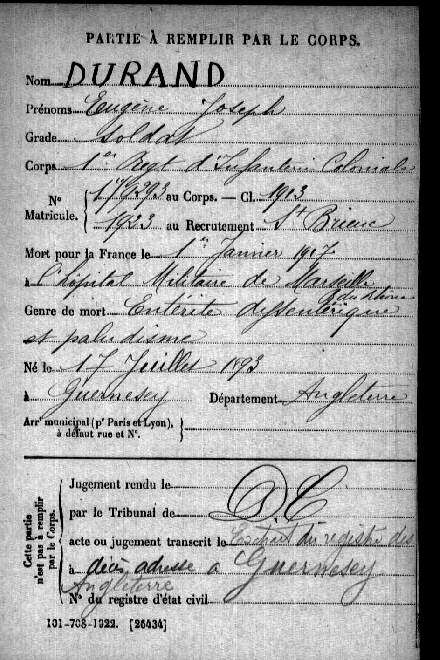 PARTIE À REMPLIR PAR LE CORPS.
Nom DURAND
Prénoms Eugène Joseph
Grade Soldat
Corps 1er Regt d'Infanterie Coloniale
Nº Matricule. { au Corps. — Cl. 1913
1933 au Recrutement St Brieuc
Mort pour la France le 1er Janvier 1917
à l'hôpital Militaire de Marseille
du Rhône
Genre de mort Entérite dysentérique
et paludisme
Né le 17 Juillet 1893
à Guernesey Département Angleterre
Arrt municipal (pr Paris et Lyon), à défaut rue et Nº. }
Cette partie n'est pas à remplir par le Corps.
Jugement rendu le
par le Tribunal de DC
acte ou jugement transcrit le Extrait du registre des
à décès adressé à Guernesey
Angleterre
Nº du registre d'état civil
101-708-1922. [26434]